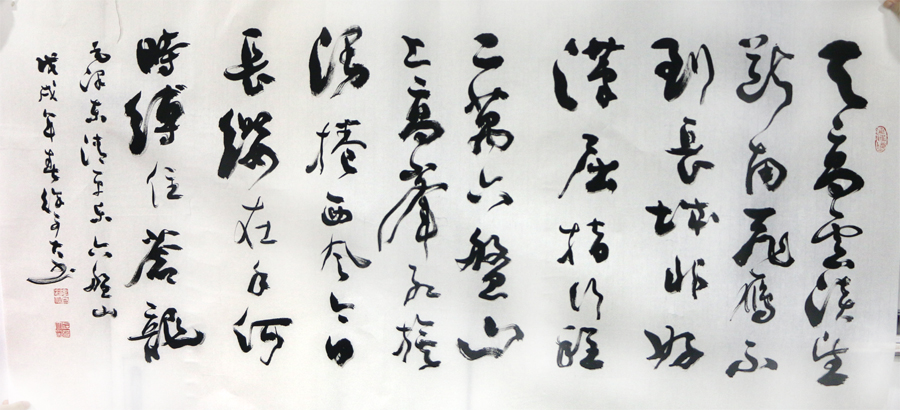 天高雲淡望
斷南飛鴈不
到長城非好
漢屈指行程
二萬六盤山
上高峯紅旗
漫捲西風今日
長纓在手何
時縛住蒼龍
毛澤東清平樂六盤山
戊戌年春徐書